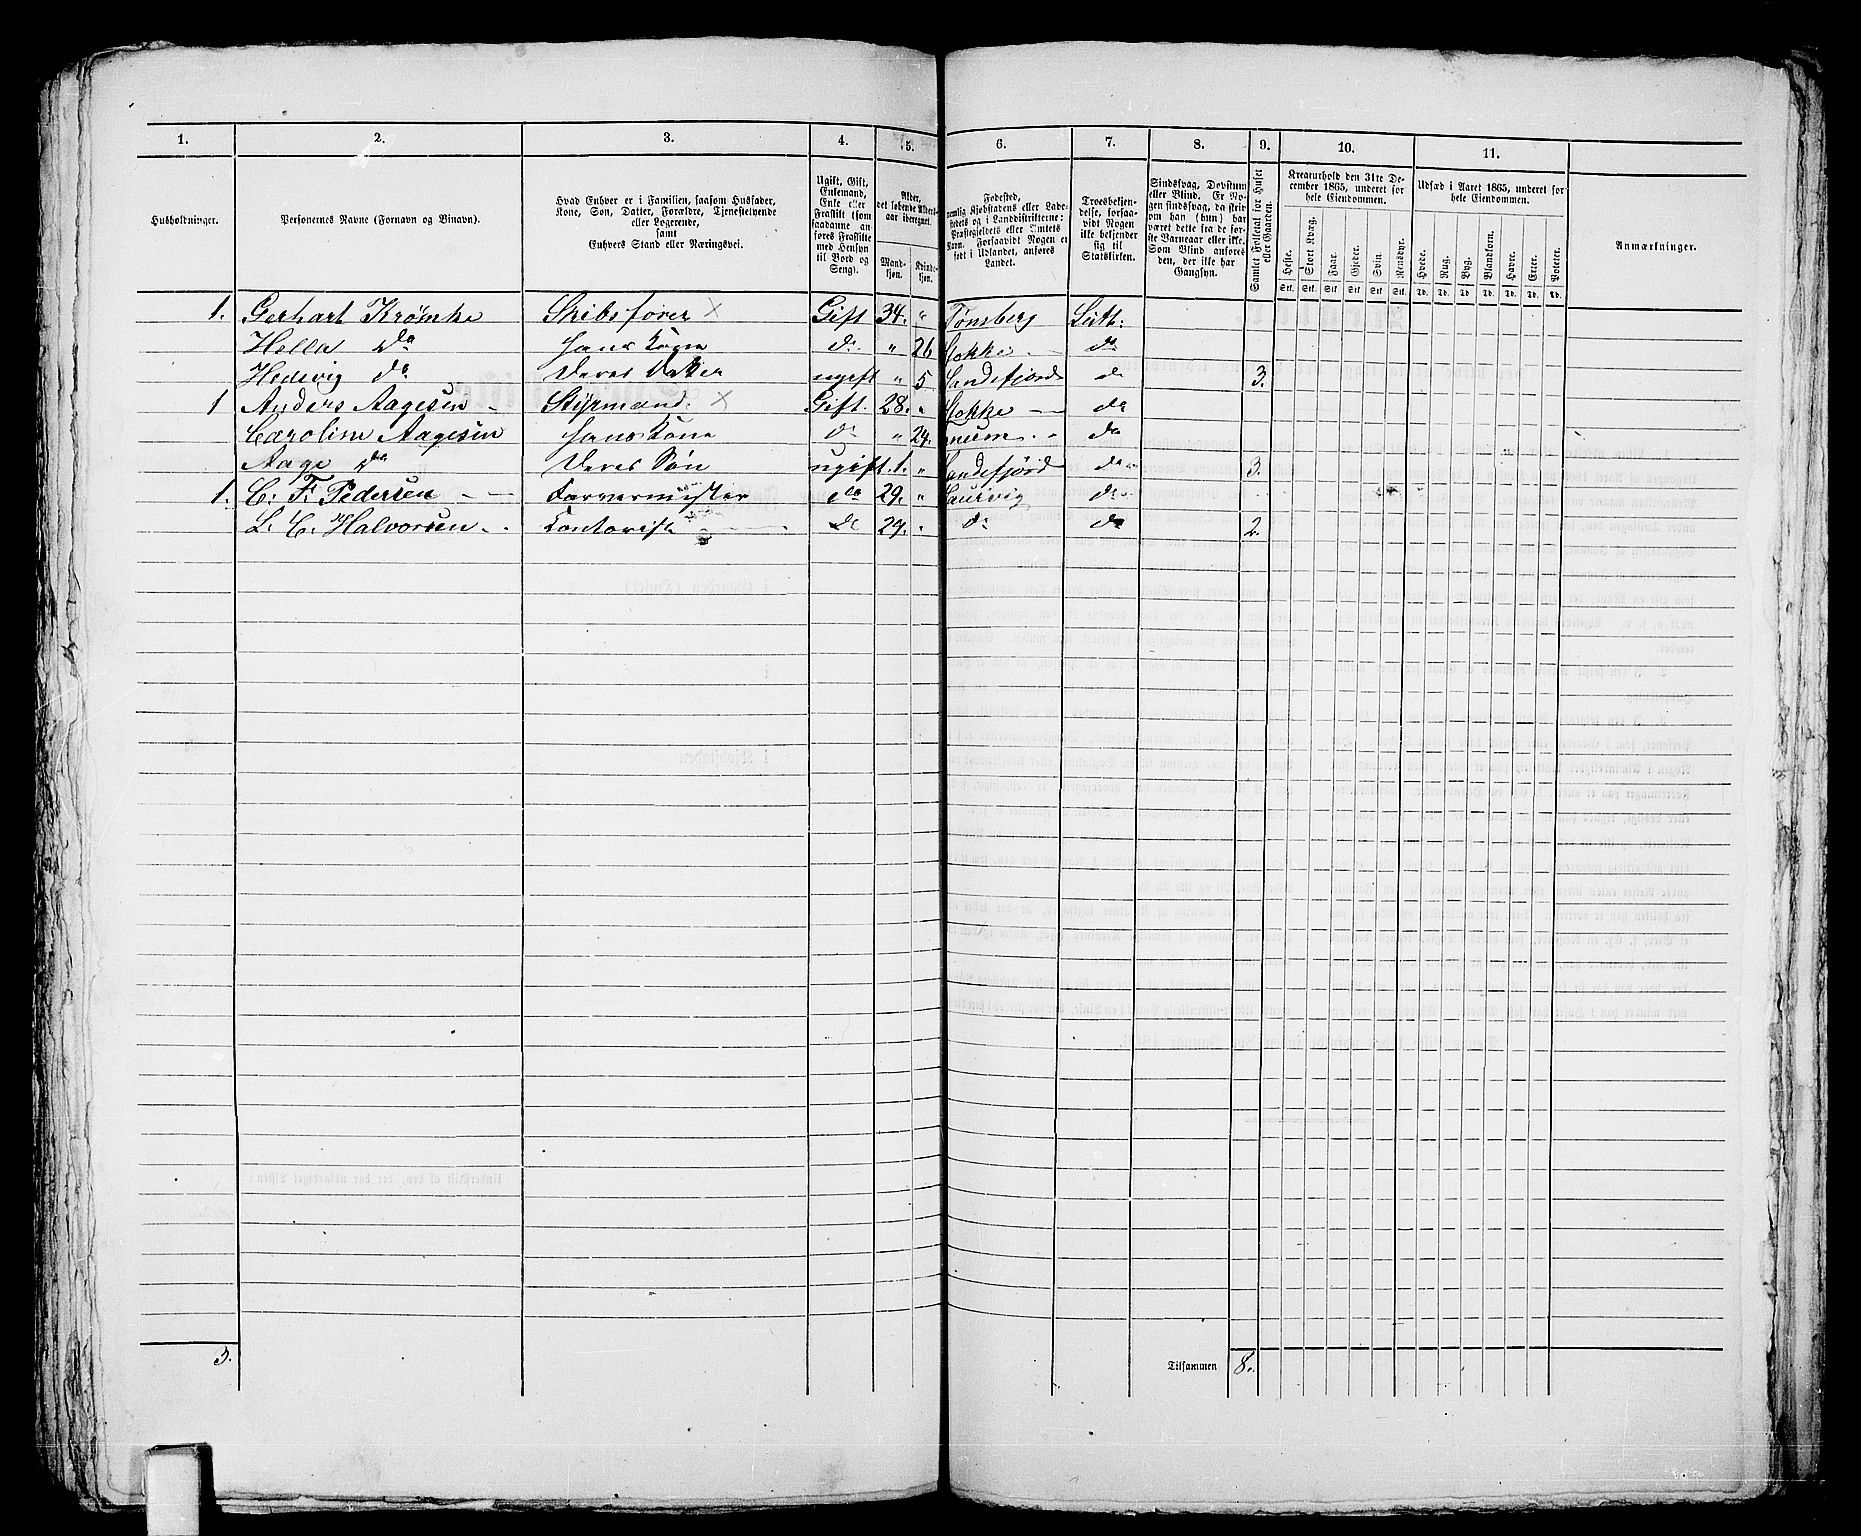 1. 2. 3. 4. 5. 6. 7. 8. 9. 10. 11.
Husholdninger.
Personernes Navne (Fornavn og Binavn).
Hvad Enhver er i Familien, saasom Husfader,
Kone, Søn, Datter, Forældre, Tjenestetyende
eller Logerende,
samt
Enhvers Stand eller Næringsvei.
Ugift, Gift,
Enkemand,
Enke eller
Fraskilt (som
saadanne an-
føres Fraskilte
med Hensyn
til Bord og
Seng).
Alder,
det løbende Alders-
aar iberegnet.
Mand-
kjøn.
Kvinde-
kjøn.
Fødested,
nemlig Kjøbstadens eller Lade-
stedets og i Landdistrikterne:
Præstegjeldets eller Amtets
Navn. Forsaavidt Nogen er
født i Udlandet, anføres
Landet.
Troesbekjen-
delse, forsaa-
vidt Nogen
ikke bekjender
sig til
Statskirken.
Sindssvag, Døvstum
eller Blind. Er No-
gen sindssvag, da skri-
om han (hun) har
været dette fra de før-
ste Barneaar eller ikke.
Som Blind anføres
den, der ikke har
Gangsyn.
Samlet Folketal for Huset
eller Gaarden.
Kreaturhold den 31te De-
cember 1865, underet for
hele Eiendommen.
Heste. Stort Kvæg. Faar. Gjeder. Svin. Rensdyr.
Stk. Stk. Stk. Stk. Stk. Stk.
Udsæd i Aaret 1865, underet for
hele Eiendommen.
Hvede. Rug. Byg. Blandkorn. Havre. Erter. Poteter.
Td. Td. Td. Td. Td. Td. Td.
Anmærkninger.
1. Gerhart Krømke Skibsfører × Gift 34. " Tønsberg Luth:
Hella do hans Kone do " 26 Stokke do
Hedevig do Deres Datter ugift " 5 Sandefjord do 3.
1 Anders Aagesen Styrmand. × Gift. 28. " Stokke do
Caroline Aagesen hans Kone do " 24. do
Aage do Deres Søn ugift. 1. " Sandefjord do 3.
1. C. F. Pedersen Farvermester do 29. " Laurvig do
L. C. Halvorsen Kontorist do 29. " do do 2.
3. Tilsammen 8.